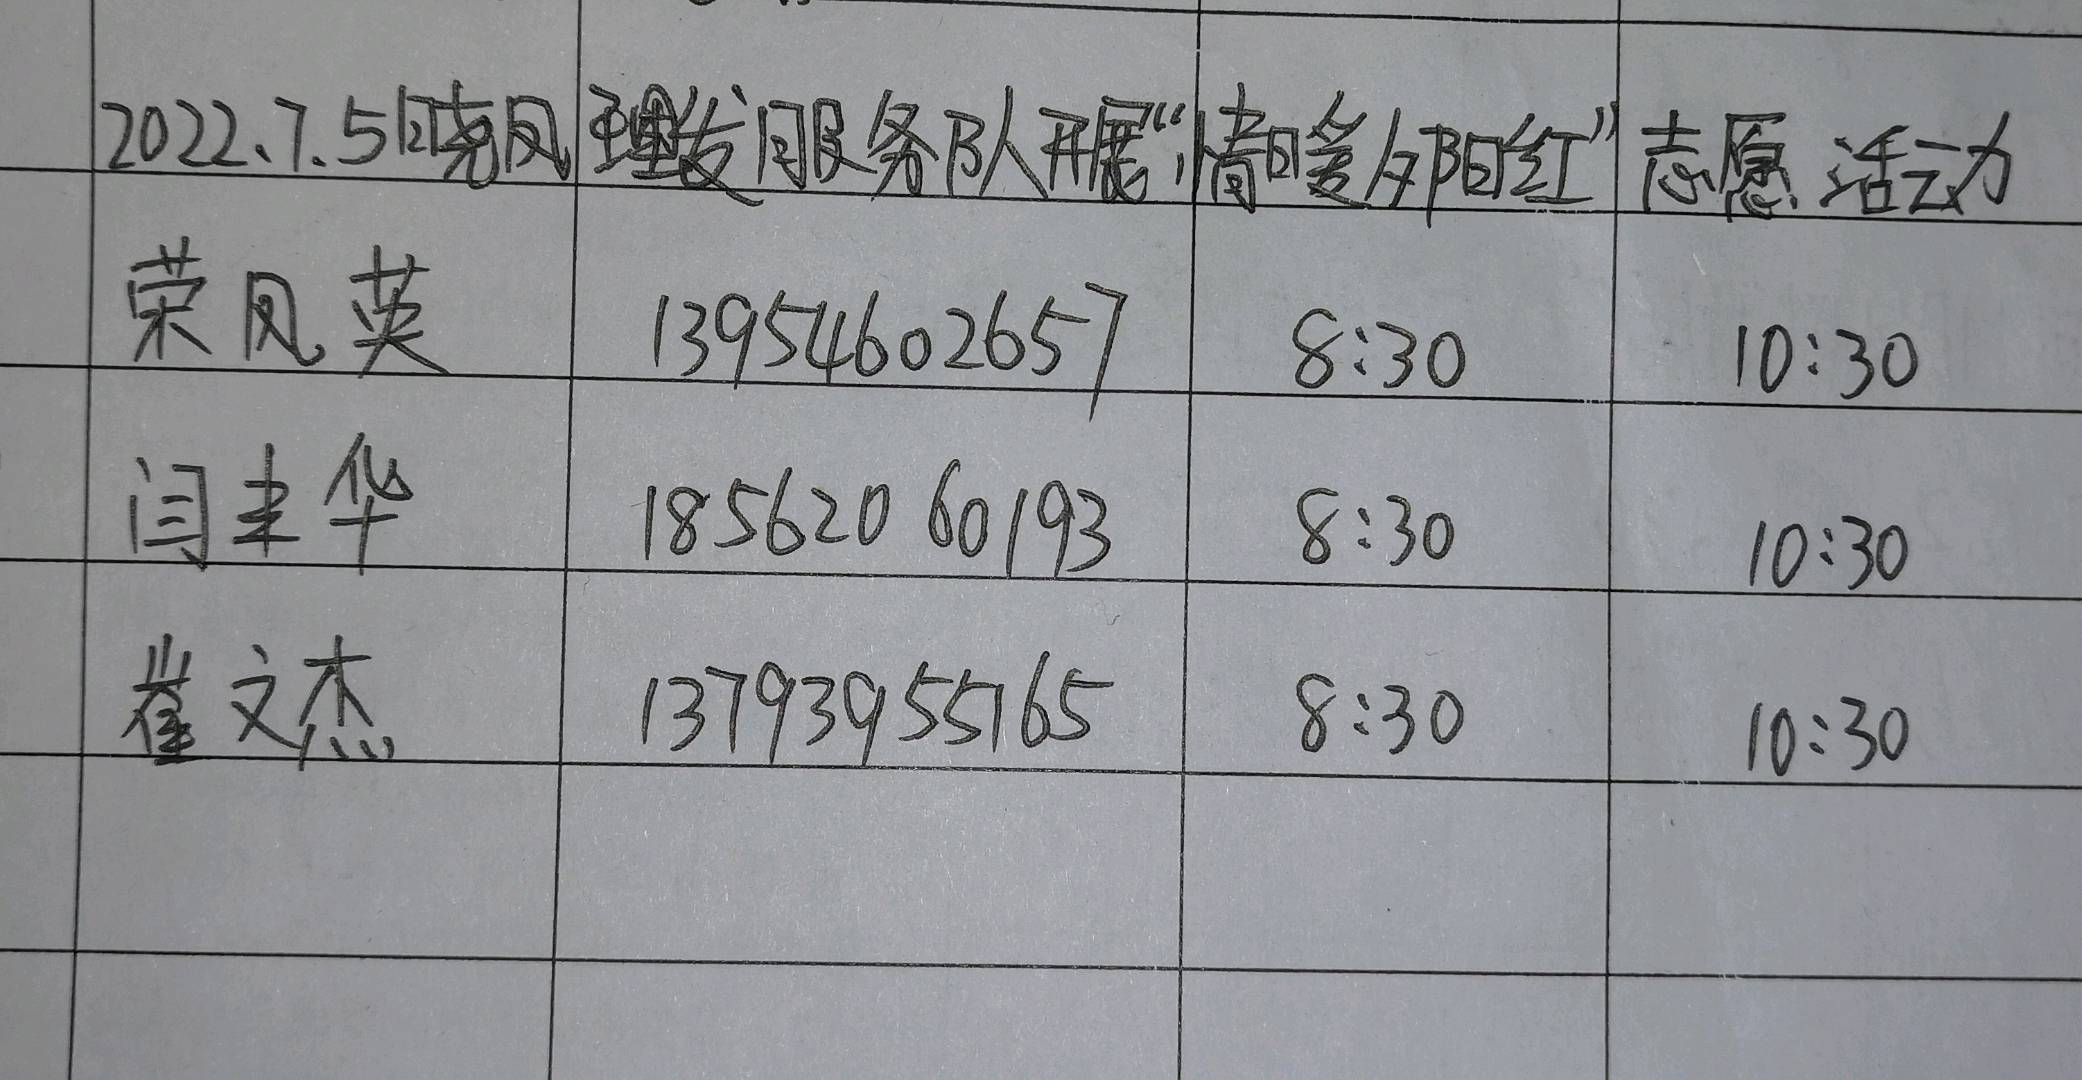 2022.7.5日晓凤理发服务队开展“情暖夕阳红”志愿活动
荣凤英 13954602657 8:30 10:30
闫丰华 18562060193 8:30 10:30
崔文杰 13793955165 8:30 10:30